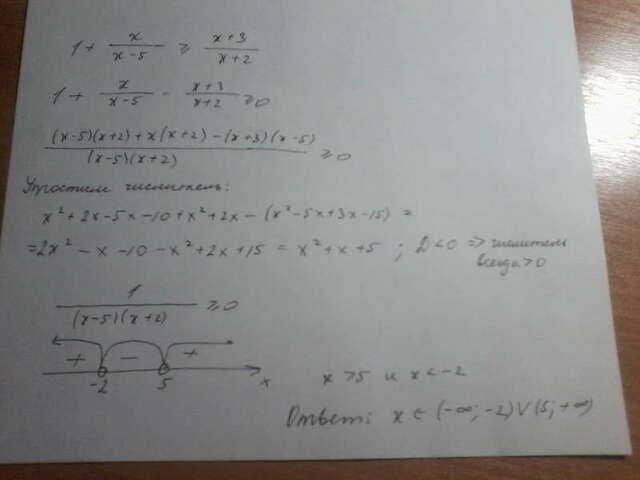 1 + x/(x-5) ≥ (x+3)/(x+2)
1 + x/(x-5) - (x+3)/(x+2) ≥ 0
((x-5)(x+2) + x(x+2) - (x+3)(x-5))/((x-5)(x+2)) ≥ 0
Упростим числитель:
x² + 2x - 5x - 10 + x² + 2x - (x² - 5x + 3x - 15) =
= 2x² - x - 10 - x² + 2x + 15 = x² + x + 5 ; D < 0 => числитель
всегда > 0
1/((x-5)(x+2)) ≥ 0
+ - +
-2 5 x
x > 5 и x < -2
Ответ: x ∈ (-∞; -2) ∪ (5; +∞)